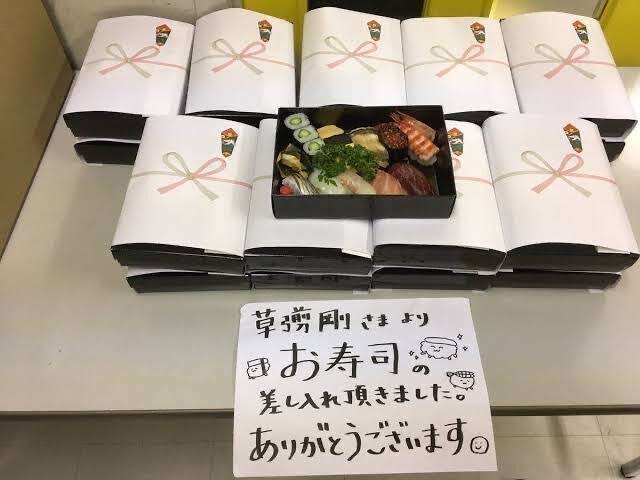 草彅剛さまより
お寿司の
差し入れ頂きました。
ありがとうございます。